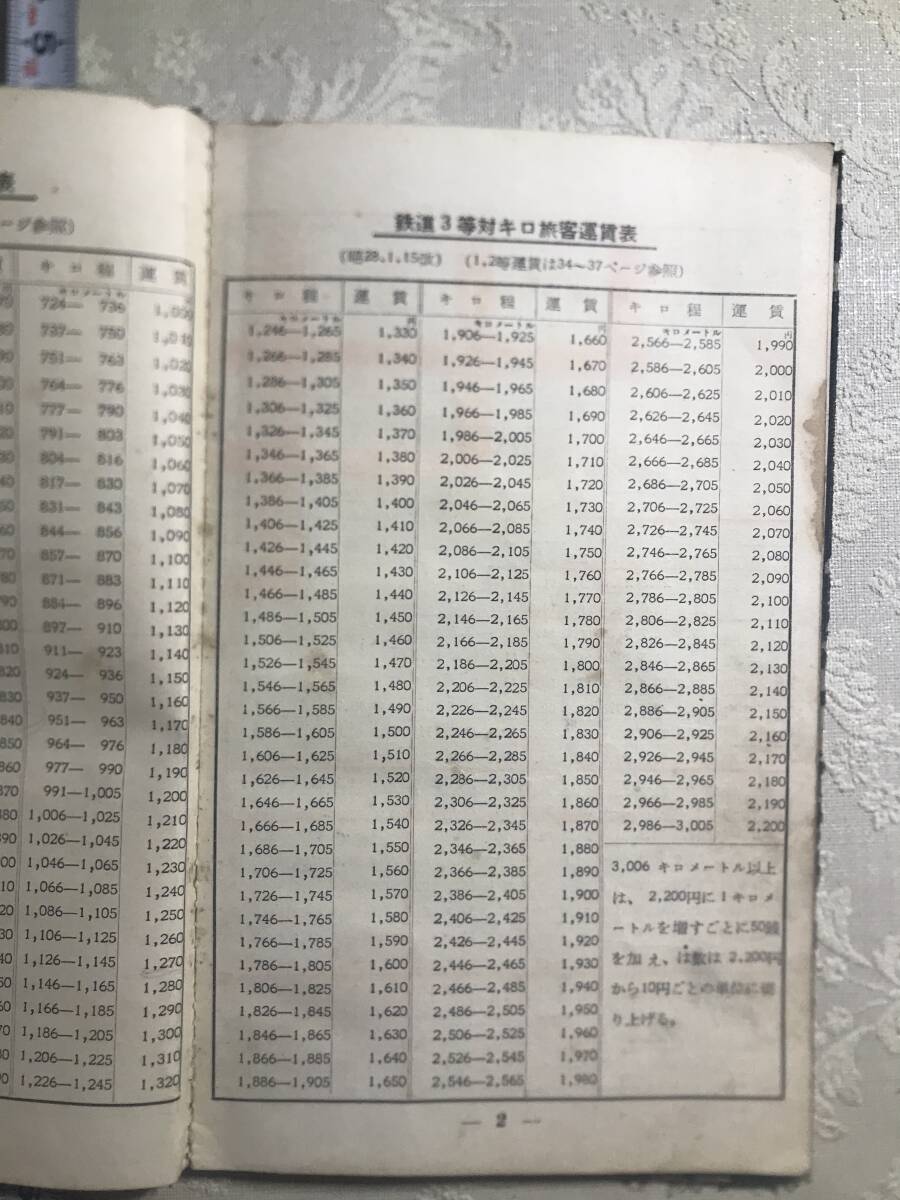 5
表
ージ参照)
キ ロ 程 運 賃
キロメートル 円
724— 736
737— 750
751— 763 1,020
764— 776 1,030
777— 790 1,040
791— 803 1,050
804— 816 1,060
817— 830 1,070
831— 843 1,080
844— 856 1,090
857— 870 1,100
871— 883 1,110
884— 896 1,120
897— 910 1,130
911— 923 1,140
924— 936 1,150
937— 950 1,160
951— 963 1,170
964— 976 1,180
977— 990 1,190
991—1,005 1,200
1,006—1,025 1,210
1,026—1,045 1,220
1,046—1,065 1,230
1,066—1,085 1,240
1,086—1,105 1,250
1,106—1,125 1,260
1,126—1,145 1,270
1,146—1,165 1,280
1,166—1,185 1,290
1,186—1,205 1,300
1,206—1,225 1,310
1,226—1,245 1,320
鉄道3等対キロ旅客運賃表
(昭28.1.15改) (1,2等運賃は34~37ページ参照)
キ ロ 程 運 賃 キ ロ 程 運 賃 キ ロ 程 運 賃
キロメートル 円 キロメートル 円 キロメートル 円
1,246—1,265 1,330 1,906—1,925 1,660 2,566—2,585 1,990
1,266—1,285 1,340 1,926—1,945 1,670 2,586—2,605 2,000
1,286—1,305 1,350 1,946—1,965 1,680 2,606—2,625 2,010
1,306—1,325 1,360 1,966—1,985 1,690 2,626—2,645 2,020
1,326—1,345 1,370 1,986—2,005 1,700 2,646—2,665 2,030
1,346—1,365 1,380 2,006—2,025 1,710 2,666—2,685 2,040
1,366—1,385 1,390 2,026—2,045 1,720 2,686—2,705 2,050
1,386—1,405 1,400 2,046—2,065 1,730 2,706—2,725 2,060
1,406—1,425 1,410 2,066—2,085 1,740 2,726—2,745 2,070
1,426—1,445 1,420 2,086—2,105 1,750 2,746—2,765 2,080
1,446—1,465 1,430 2,106—2,125 1,760 2,766—2,785 2,090
1,466—1,485 1,440 2,126—2,145 1,770 2,786—2,805 2,100
1,486—1,505 1,450 2,146—2,165 1,780 2,806—2,825 2,110
1,506—1,525 1,460 2,166—2,185 1,790 2,826—2,845 2,120
1,526—1,545 1,470 2,186—2,205 1,800 2,846—2,865 2,130
1,546—1,565 1,480 2,206—2,225 1,810 2,866—2,885 2,140
1,566—1,585 1,490 2,226—2,245 1,820 2,886—2,905 2,150
1,586—1,605 1,500 2,246—2,265 1,830 2,906—2,925 2,160
1,606—1,625 1,510 2,266—2,285 1,840 2,926—2,945 2,170
1,626—1,645 1,520 2,286—2,305 1,850 2,946—2,965 2,180
1,646—1,665 1,530 2,306—2,325 1,860 2,966—2,985 2,190
1,666—1,685 1,540 2,326—2,345 1,870 2,986—3,005 2,200
1,686—1,705 1,550 2,346—2,365 1,880
1,706—1,725 1,560 2,366—2,385 1,890
1,726—1,745 1,570 2,386—2,405 1,900
1,746—1,765 1,580 2,406—2,425 1,910
1,766—1,785 1,590 2,426—2,445 1,920
1,786—1,805 1,600 2,446—2,465 1,930
1,806—1,825 1,610 2,466—2,485 1,940
1,826—1,845 1,620 2,486—2,505 1,950
1,846—1,865 1,630 2,506—2,525 1,960
1,866—1,885 1,640 2,526—2,545 1,970
1,886—1,905 1,650 2,546—2,565 1,980
3,006 キロメートル以上
は、2,200円に1キロメ
ートルを増すごとに50銭
を加え、は数は 2,200円
から10円ごとの単位に切
り上げる。
— 2 —